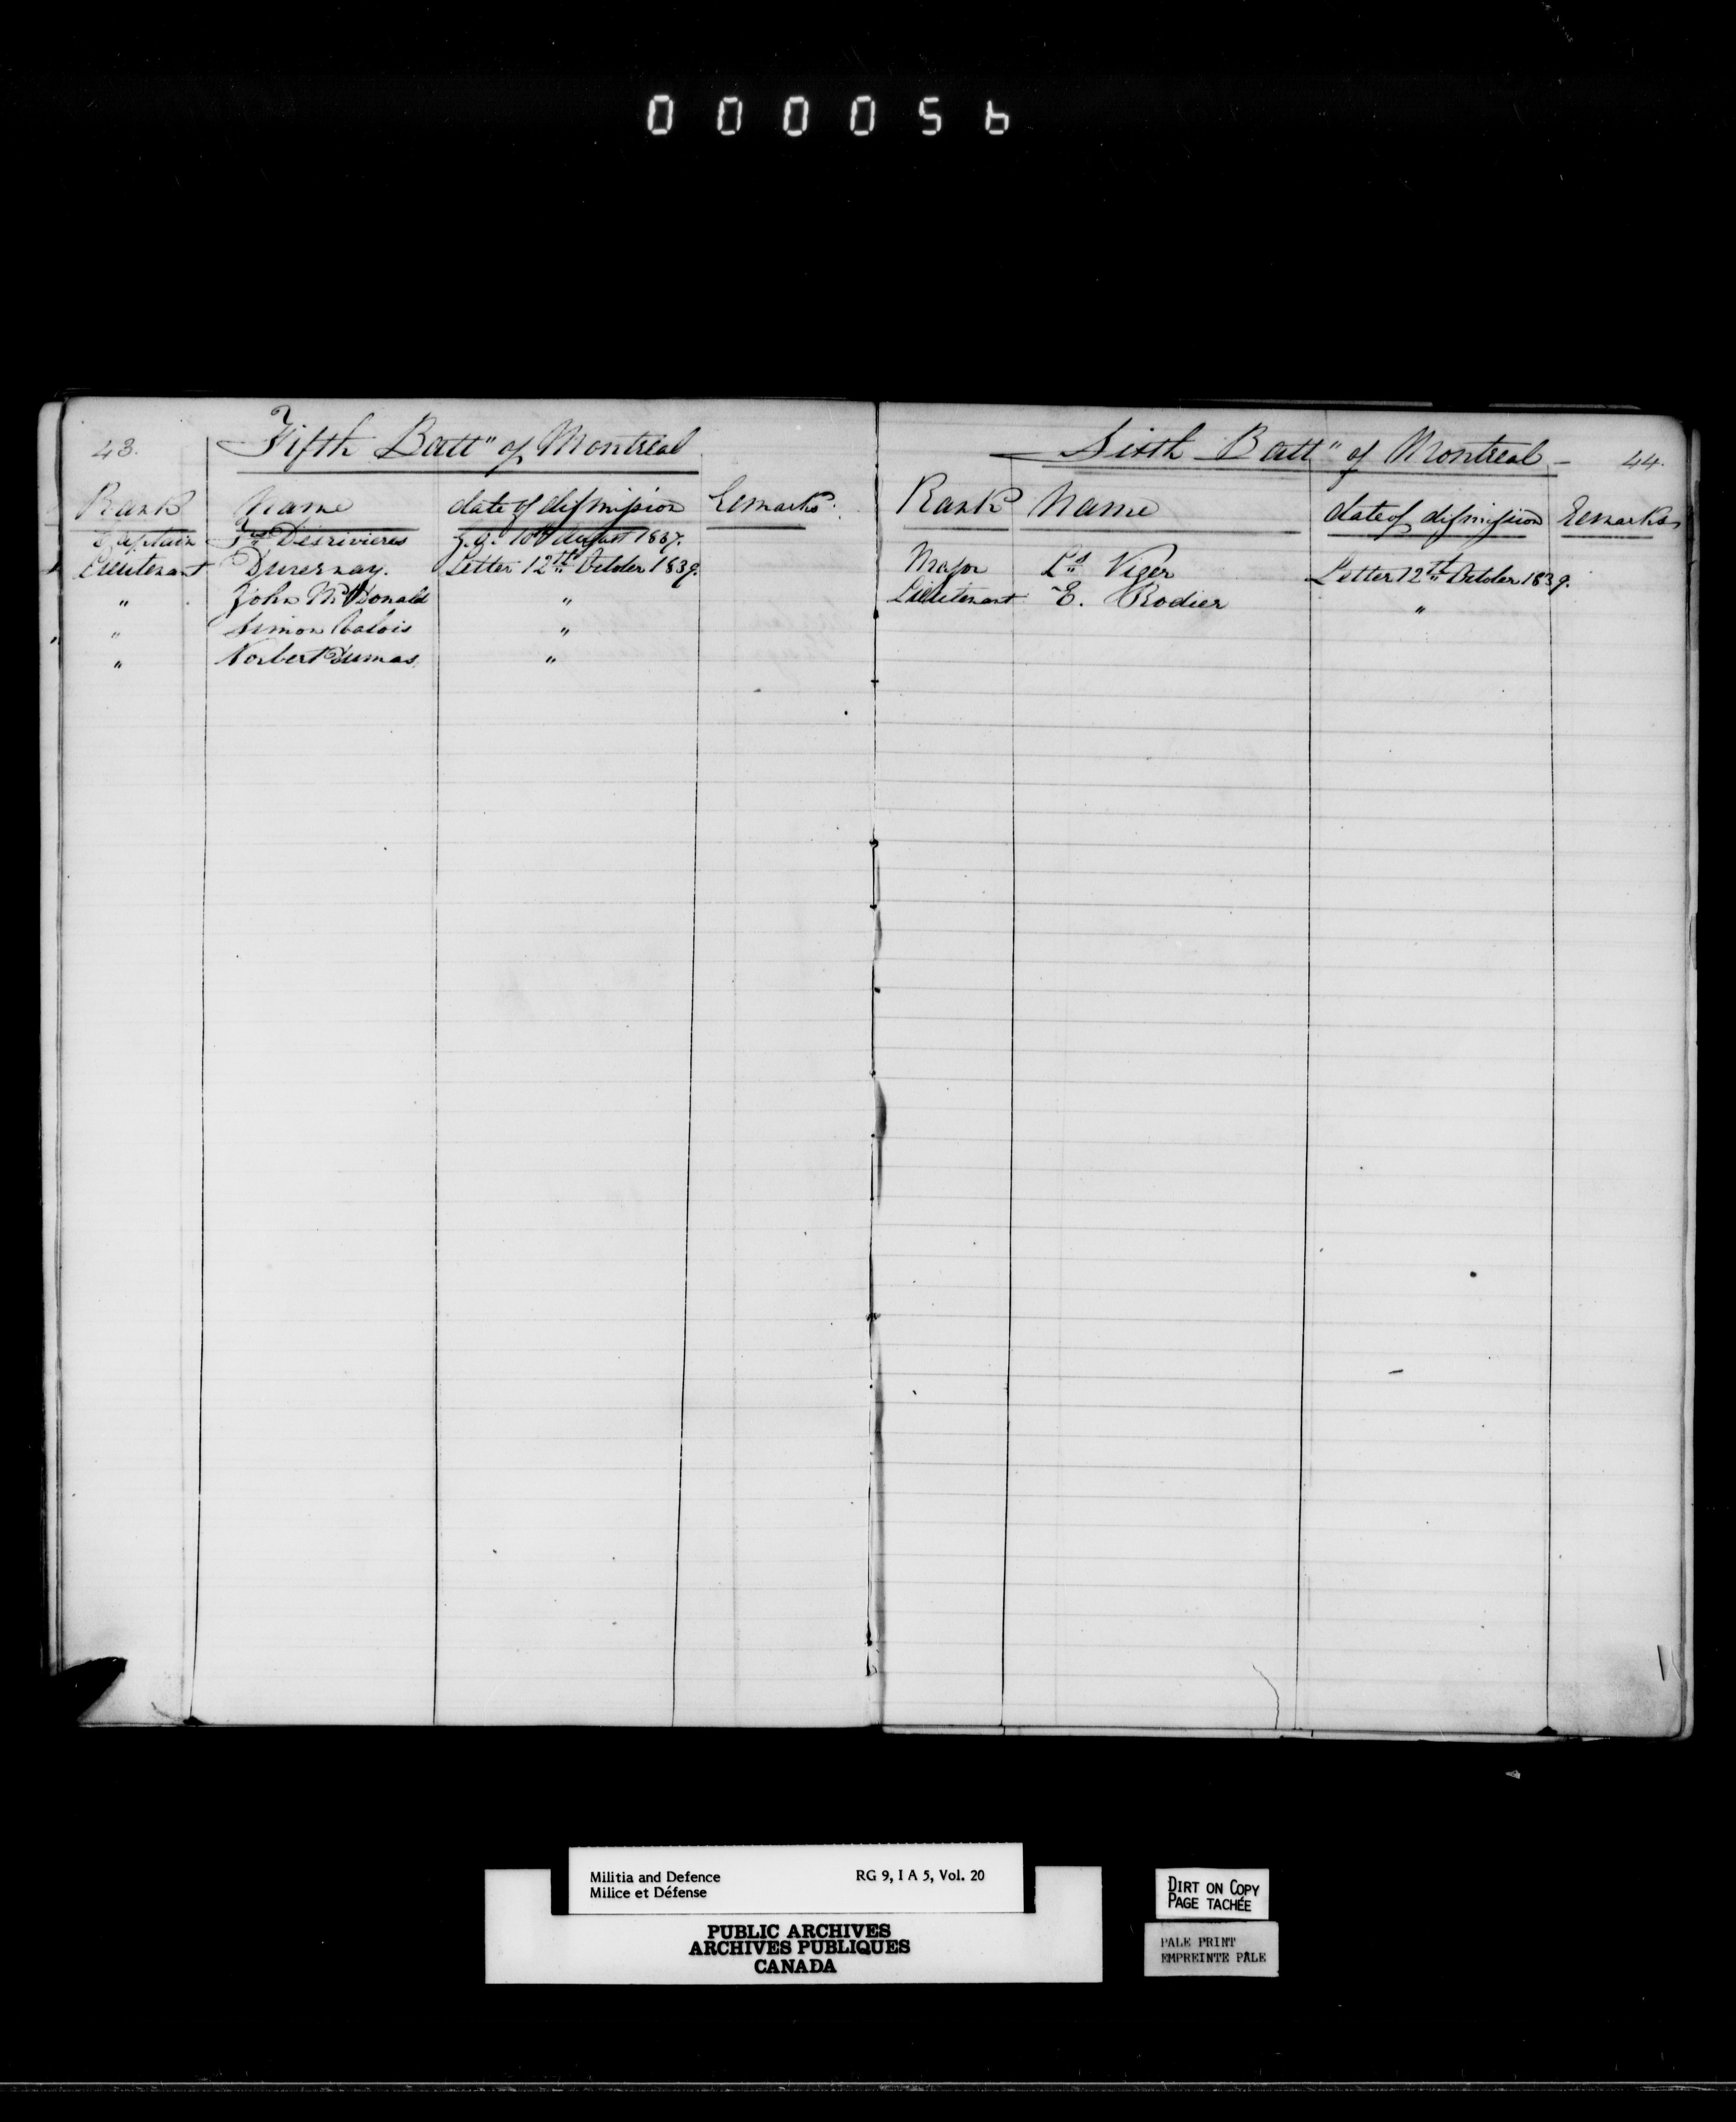 000056
43.
Fifth Batt" of Montreal
Rank Name date of dismission Remarks
Captain Frs Desrivieres G.O. 10th August 1837.
Lieutenant Duvernay. Letter 12th October 1839.
" John McDonald "
" Simon Valois "
" Norbert Dumas "
Sixth Batt" of Montreal 44.
Rank Name date of dismission Remarks
Major Ls Viger Letter 12th October 1839.
Lieutenant E. Rodier "
Militia and Defence RG 9, I A 5, Vol. 20
Milice et Défense
PUBLIC ARCHIVES
ARCHIVES PUBLIQUES
CANADA
DIRT ON COPY
PAGE TACHÉE
PALE PRINT
EMPREINTE PÂLE